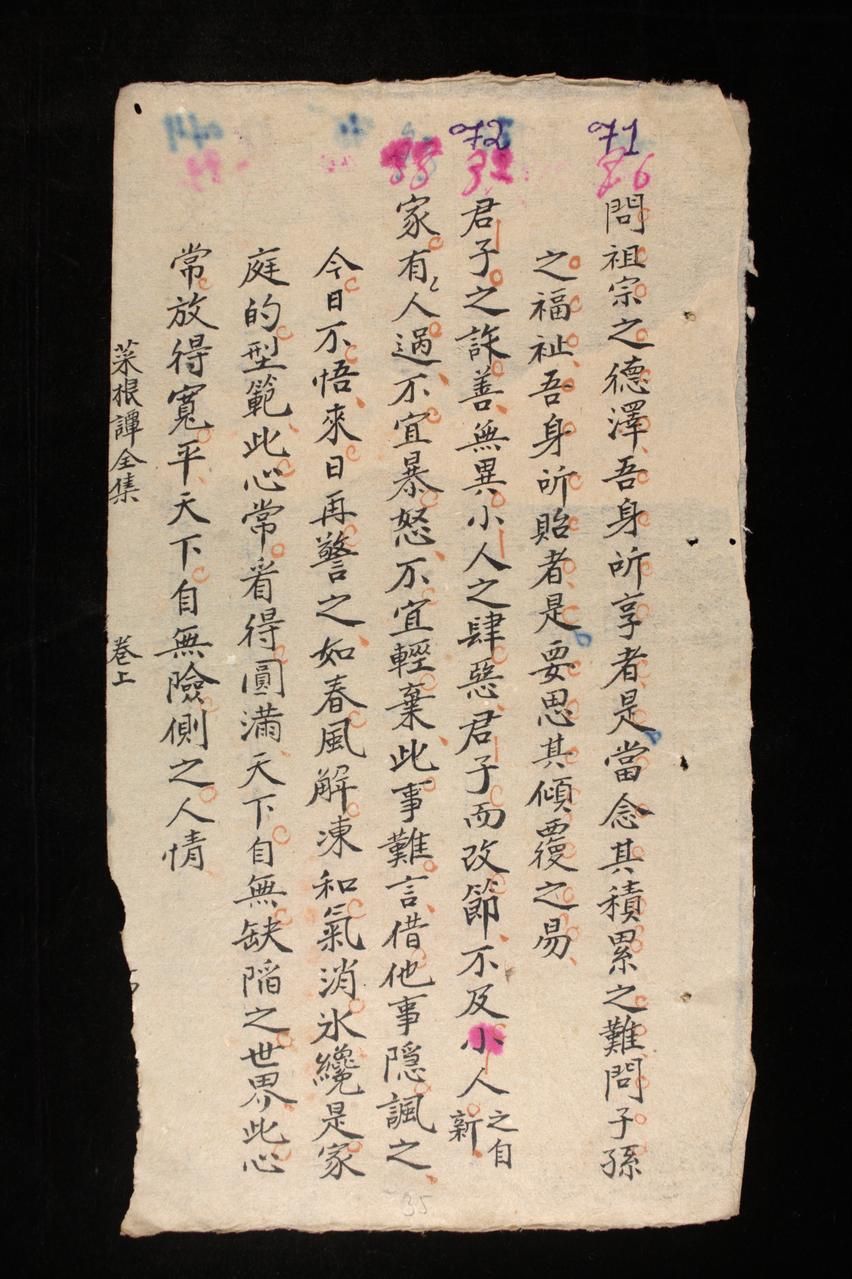 71
72
86
32
問祖宗之德澤吾身所享者是當念其積累之難問子孫
之福祉吾身所貽者是要思其傾覆之易
君子之詐善無異小人之肆惡君子而改節不及小人之自新
家有人過不宜暴怒不宜輕棄此事難言借他事隱諷之
今日不悟來日再警之如春風解凍和氣消氷纔是家
庭的型範此心常看得圓滿天下自無缺陷之世界此心
常放得寬平天下自無險側之人情
菜根譚全集 卷上
35